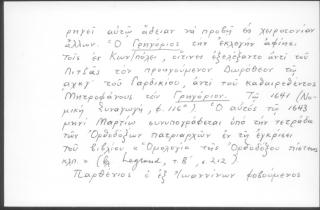 ρηγεί αὐτῷ ἄδειαν νὰ προβῇ εἰς χειροτονίαν
ἄλλων. "Ὁ Γρηγόριος την ἐκλογὴν ἀφίνει
τοῖς ἐν Κων/πόλει, οἵτινες ἐξελέξαντο ἀντὶ τοῦ
Λιτζᾶς τὸν προηγούμενον Δωρόθεον τῷ
αχκγ' τοῦ Γαρδικίου, ἀντὶ τοῦ καθαιρεθέντος
Μητροφάνους τὸν Γρηγόριον. Τῷ 1641 (Νο-
μικὴ Συναγωγή, φ. 116α) "Ὁ αὐτὸς τῷ 1643
μηνὶ Μαρτίῳ συνυπογράφεται ὑπὸ τὴν τετράδα
τῶν Ὀρθοδόξων πατριαρχῶν ἐν τῇ ἐγκρίσει
τοῦ βιβλίου «Ὁμολογία τῆς Ὀρθοδόξου πίστεως
κλπ.» (Legrand, τ. Β', σ. 212)
Παρθένιος ὁ ἐξ Ἰωαννίνων φοβούμενος